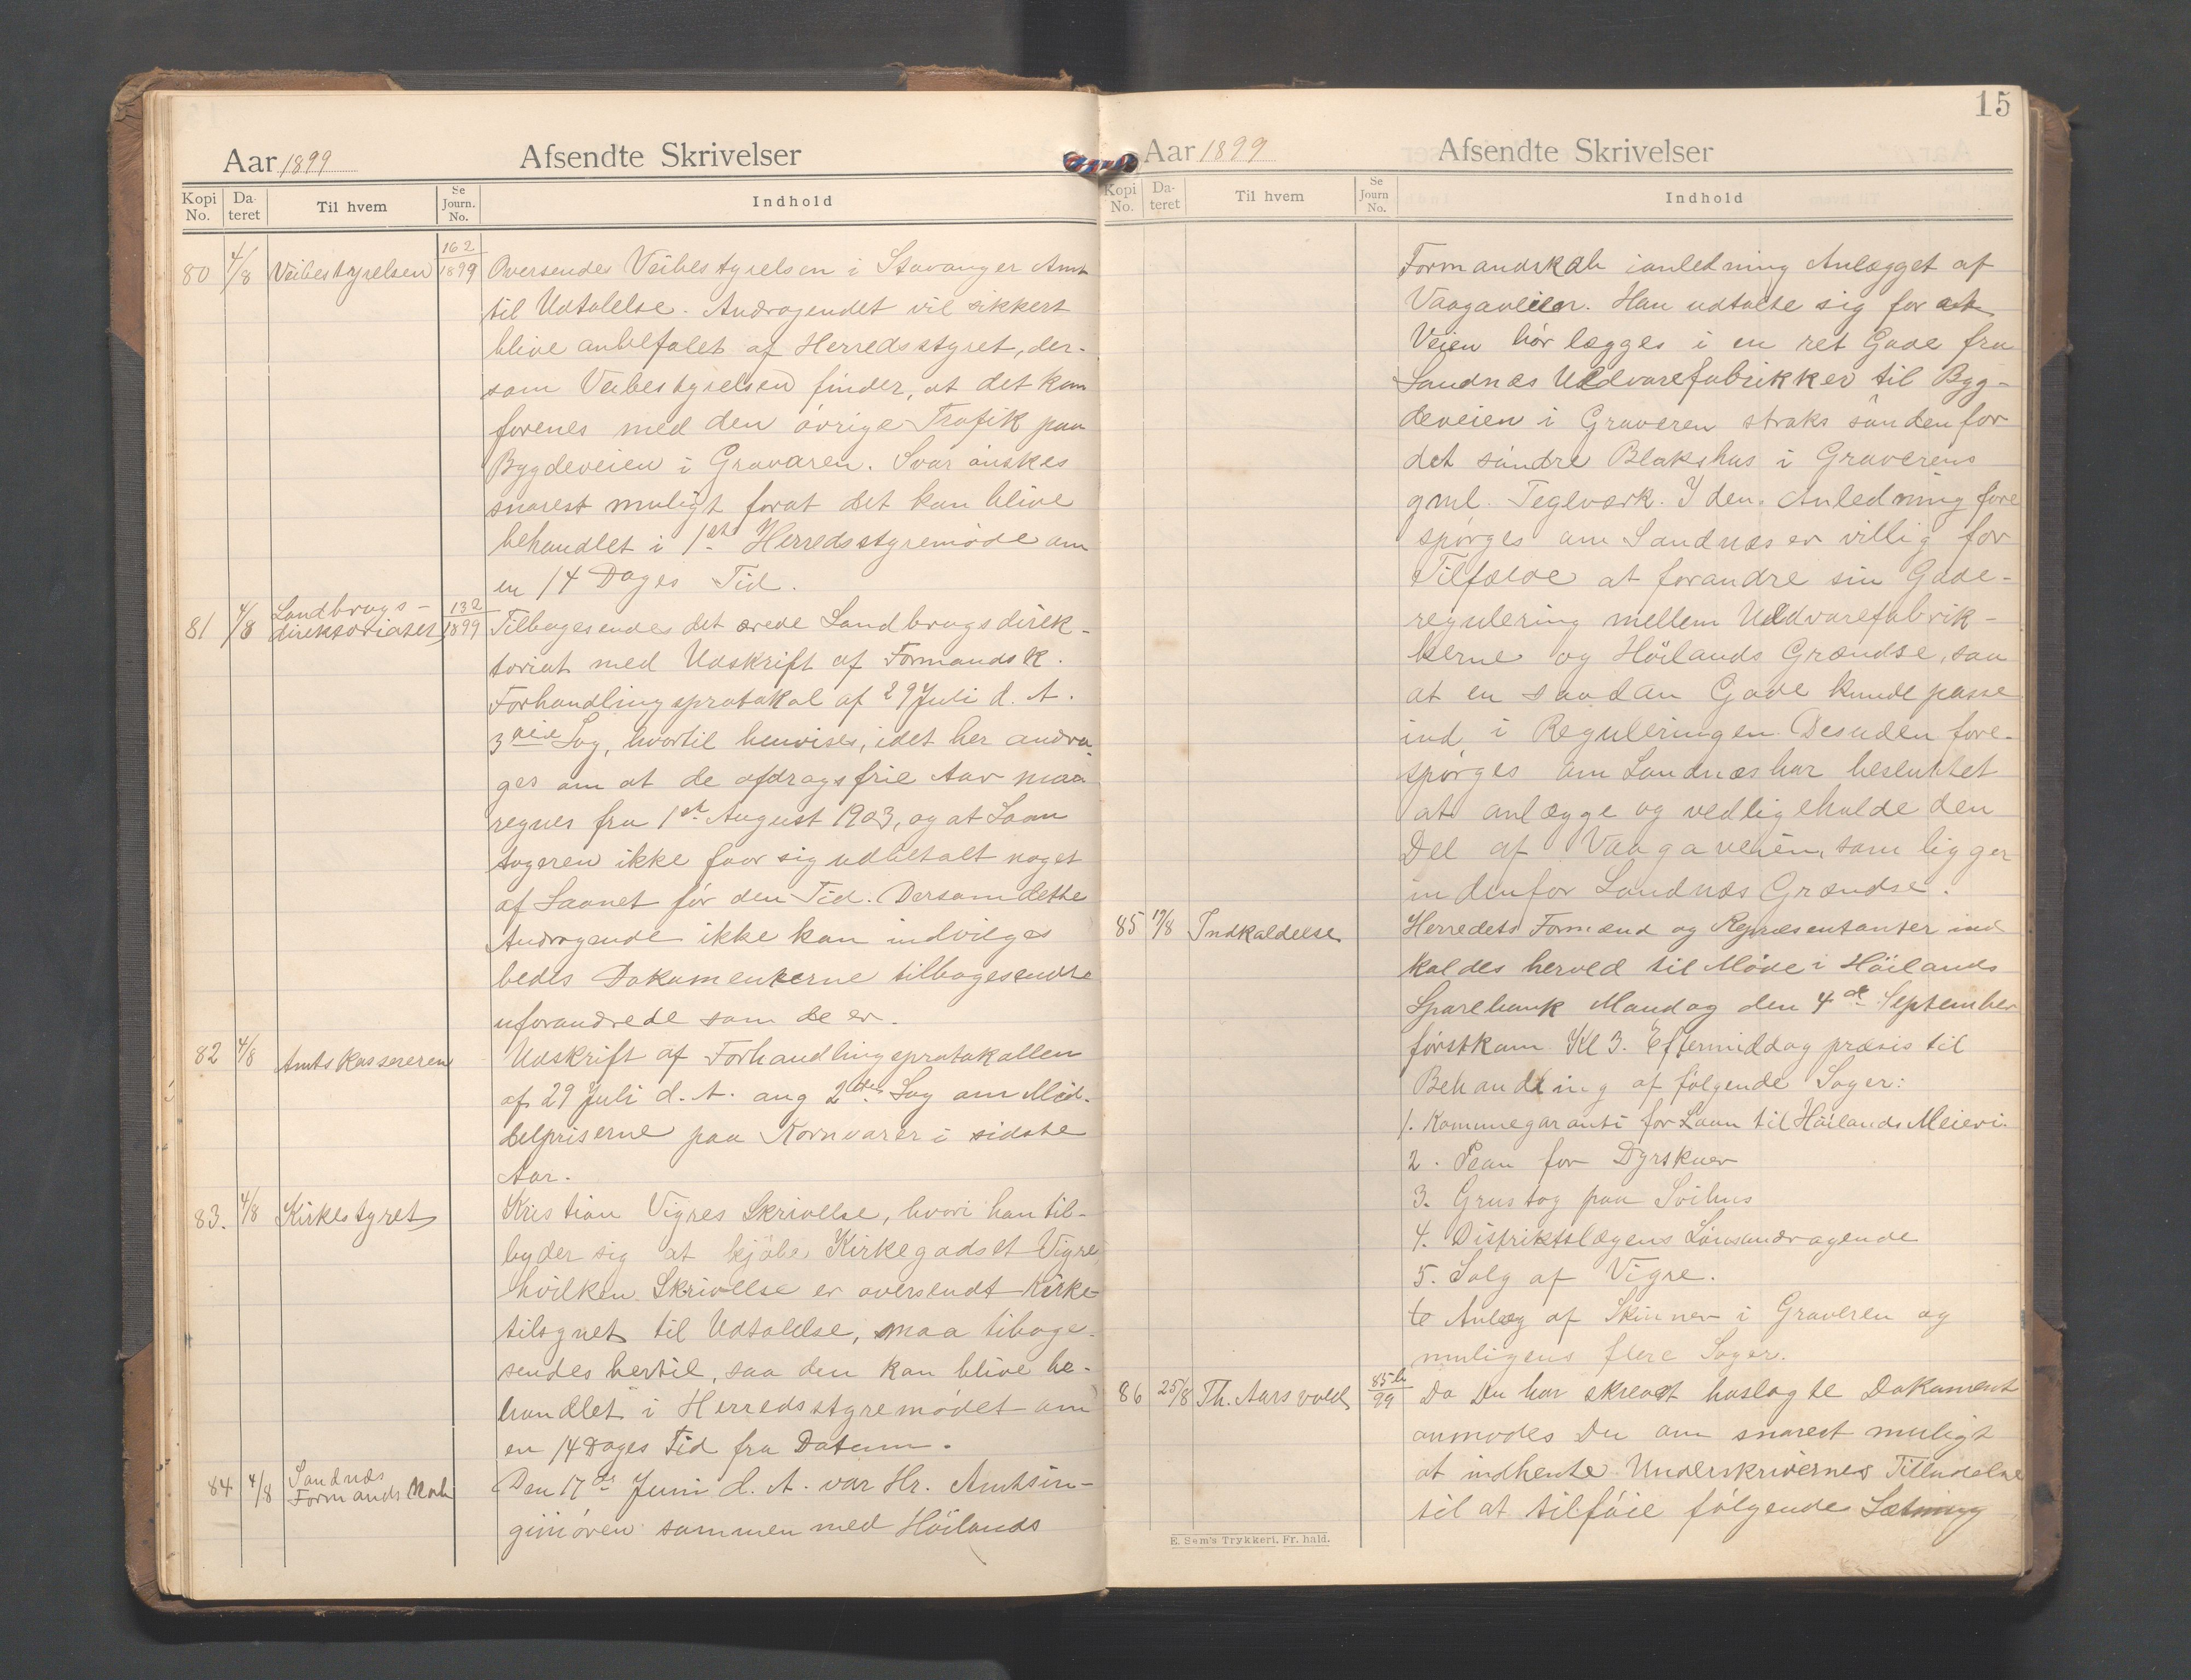 Aar 1899 Afsendte Skrivelser
Kopi No. Dateret Til hvem Se Journ. No. Indhold
80 4/8 Veibestyrelsen 162/1899 Oversendes Veibestyrelsen i Stavanger Amt
til Udtalelse. Andragendet vil sikkert
blive anbefalet af Herredsstyret, der-
som Veibestyrelsen finder, at det kan
forenes med den øvrige Trafik paa
Bygdeveien i Gravaren. Svar ønskes
snarest muligt forat det kan blive
behandlet i 1ste Herredsstyremøde om
en 14 Dages Tid.
81 4/8 Landbrugs-
direktoriatet 132/1899 Tilbagesendes det ærede Landbrugsdirek-
toriat med Udskrift af Formandsk.
Forhandlingsprotokol af 29 Juli d. A.
3die Sag, hvortil henvises, idet her andra-
ges om at de afdragsfrie Aar maa
regnes fra 1st August 1903, og at Laan
tageren ikke faar sig udbetalt noget
af Laanet før den Tid. Dersom dette
Andragende ikke kan indvilges
bedes Dokumenterne tilbagesendte
uforandrede som de er.
82 4/8 Amtskassereren Udskrift af Forhandlingsprotokollen
af 29 Juli d. A. ang 2den Sag om Mid-
delpriserne paa Kornvarer i sidste
Aar.
83. 4/8 Kirkestyret Kristian Vigres Skrivelse, hvori han til-
byder sig at kjøbe Kirkegodset Vigre,
hvilken Skrivelse er oversendt Kirke-
tilsynet til Udtalelse, maa tibage-
sendes hertil, saa den kan blive be-
handlet i Herredsstyremødet om
en 14 Dages Tid fra Datum.
84 4/8 Sandnæs
Formandskab Den 17de Juni d. A. var Hr. Amtsin-
giniøren sammen med Höilands
15
Aar 1899 Afsendte Skrivelser
Kopi No. Dateret Til hvem Se Journ No. Indhold
Formandskab ianledning Anlægget af
Vaagaveien. Han udtalte sig for at
Veien bør lægges i en ret Gade fra
Sandnæs Uldvarefabrikker til Byg-
deveien i Graveren straks søndenfor
det søndre Blakshus i Graverens
gml. Teglværk. I den Anledning fore
spørges om Sandnæs er villig for
Tilfælde at forandre sin Gade-
regulering mellem Uldvarefabrik-
kerne og Höilands Grændse, saa
at en saadan Gade kunde passe
ind i Reguleringen. Desuden fore-
spørges om Sandnæs har besluttet
at anlægge og vedligeholde den
Del af Vaagaveien, som ligger
indenfor Sandnæs Grændse.
85 19/8 Indkaldelse Herredets Formænd og Repræsentanter ind
kaldes herved til Møde i Höilands
Sparebank Mandag den 4de September
førstkom Kl 3. Eftermiddag præsis til
Behandling af følgende Sager:
1. Kommunegaranti for Laan til Höilands Meieri.
2. Plan for Dyrskuer
3. Grustag paa Soihus
4. Distriktslægens Lønsandragende
5. Salg af Vigre.
6 Anlæg af Skinner i Graveren og
muligens flere Sager.
86 25/8 Th. Aarsvold 85 b/99 Da Du har skrevet hoslagte Dokument
anmodes Du om snarest muligt
at indhente Underskrivernes Tilladelse
til at tilføie følgende Sætning
E. Sem's Trykkeri, Fr.hald.